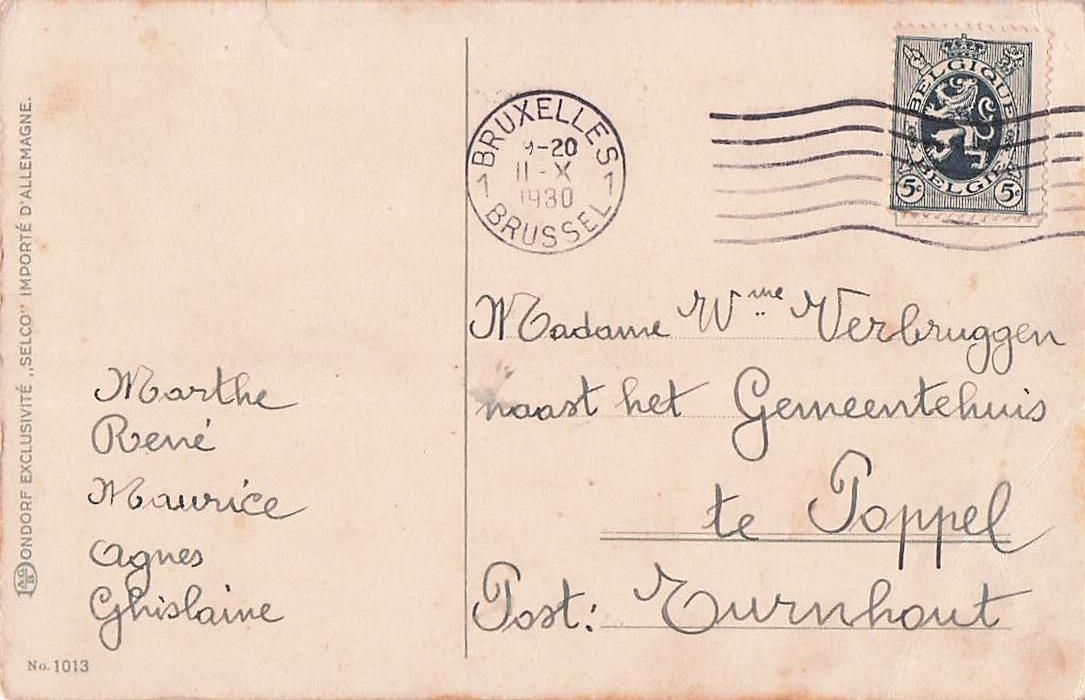 ONDORF EXCLUSIVITÉ „SELCO" IMPORTÉ D'ALLEMAGNE.
Marthe
René
Maurice
Agnes
Ghislaine
No. 1013
BRUXELLES
-20
11-X
1930
1 1
BRUSSEL
BELGIQUE
BELGIË
5c 5c
Madame Wme Verbruggen
naast het Gemeentehuis
te Poppel
Post: Turnhout